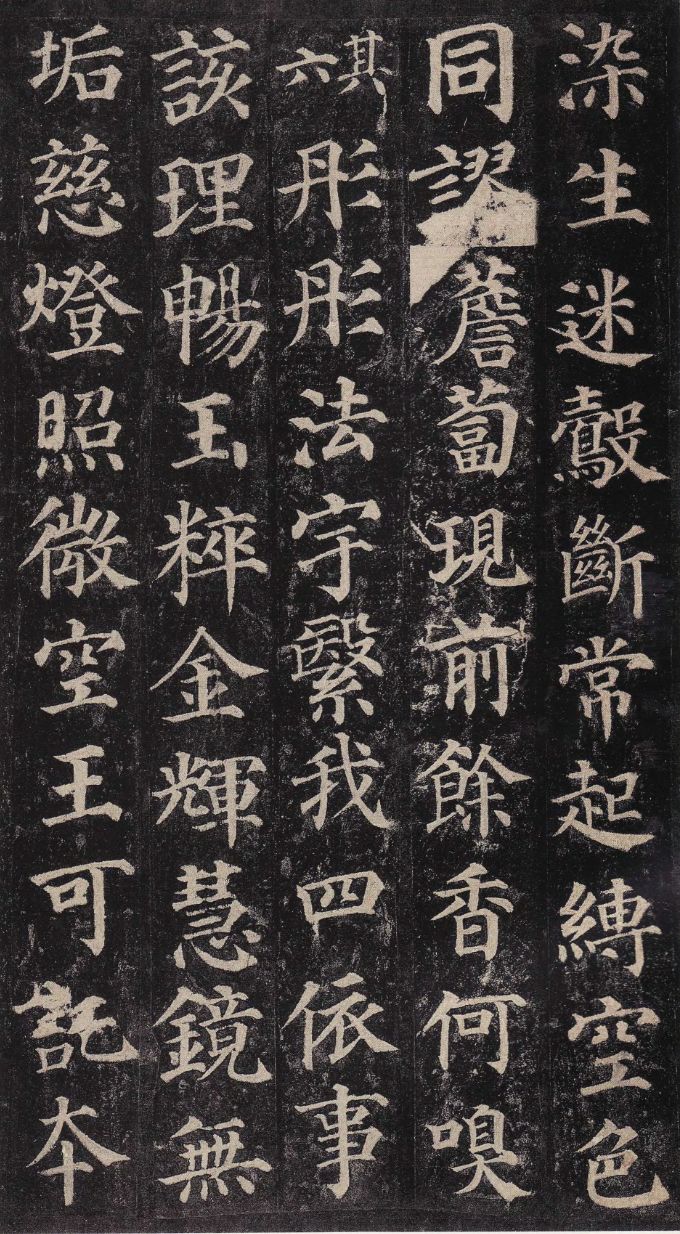 染生迷鷇斷常起縛空色
同謬薝蔔現前餘香何嗅
其六彤彤法宇繄我四依事
該理暢玉粹金輝慧鏡無
垢慈燈照微空王可託夲